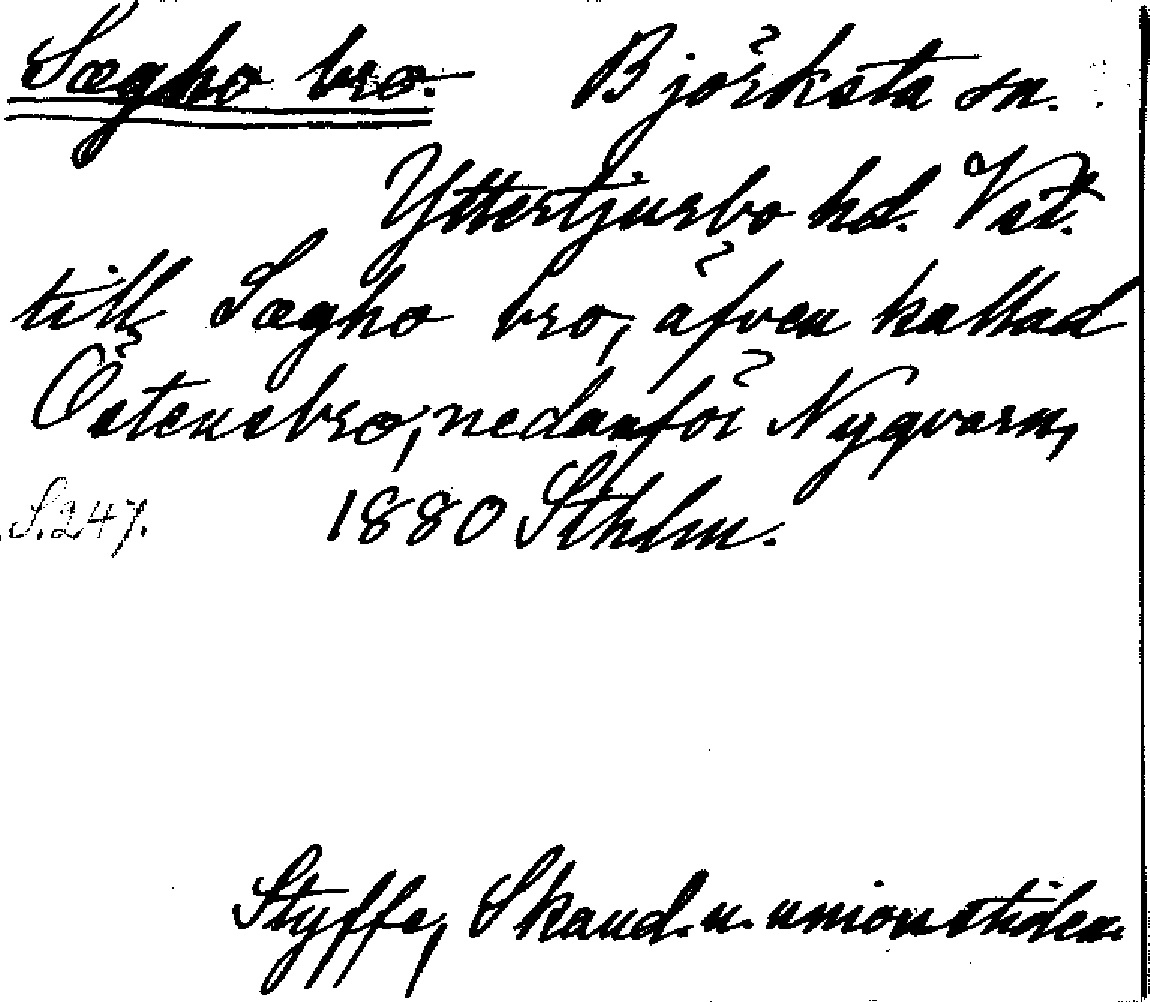 Sægho bro. Björksta sn.
Yttertjurbo hd. Vst.
till Sægho bro, äfven kallad
Östensbro, nedanför Nyqvarn,
S. 247. 1880 Sthlm.
Styffe, Skand. u. unionstiden.